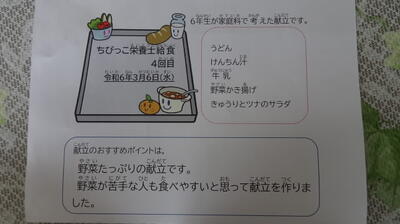 6年生が家庭科で考えた献立です。
ちびっこ栄養士給食
4回目
令和6年3月6日(水)
うどん
けんちん汁
牛乳
野菜かき揚げ
きゅうりとツナのサラダ
献立のおすすめポイントは、
野菜たっぷりの献立です。
野菜が苦手な人も食べやすいと思って献立を作りま
した。